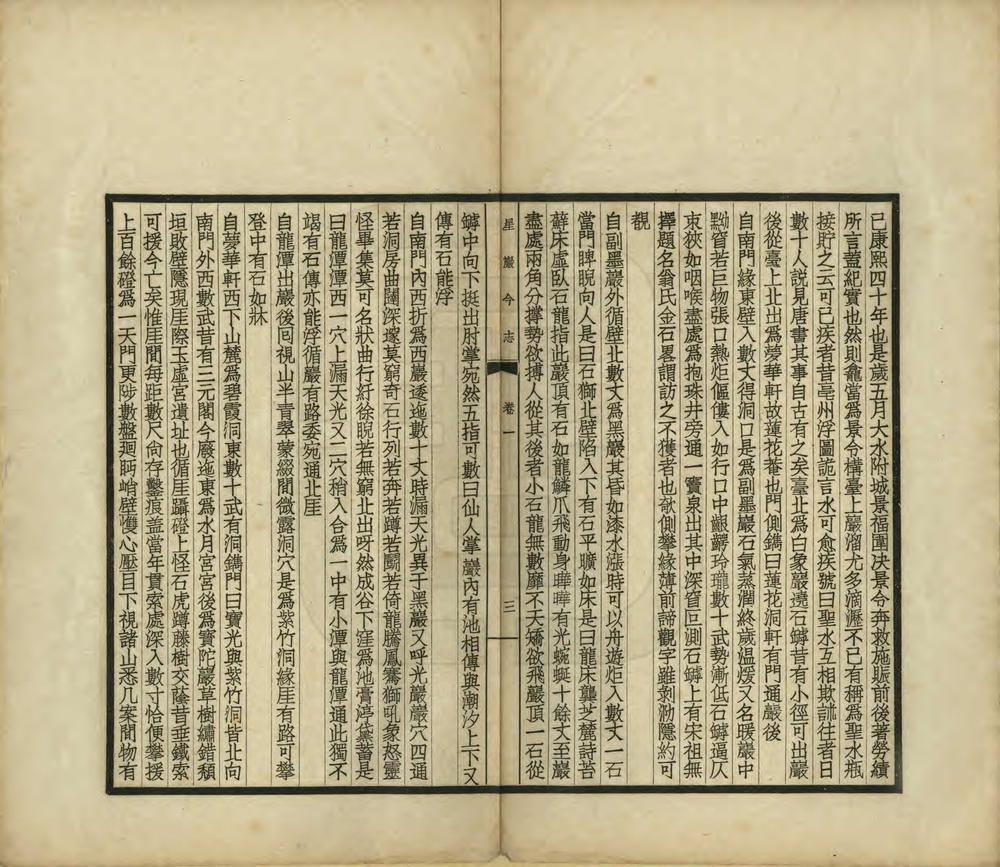 已康熙四十年也是歲五月大水附城景福圍决景令奔救施賑前後著勞績
所言蓋紀實也然則龕當爲景令構臺上巖溜尤多滴瀝不已有稱爲聖水瓶
接貯之云可已疾者昔亳州浮圖詭言水可愈疾號曰聖水互相欺誑往者日
數十人説見唐書其事自古有之矣臺北爲白象巖遶石罅昔有小徑可出巖
後從臺上北出爲夢華軒故蓮花菴也門側鐫曰蓮花洞軒有門通巖後
自南門緣東壁入數丈得洞口是爲副墨巖石氣蒸潤終歲温煖又名暖巖中
黝窅若巨物張口熱炬傴僂入如行口中齦齶玲瓏數十武勢漸低石罅逼仄
束狹如咽喉盡處爲抱珠井旁通一竇泉出其中深窅叵測石罅上有宋祖無
擇題名翁氏金石畧謂訪之不獲者也欹側攀緣薄前諦觀字雖剝泐隱約可
覩
自副墨巖外循壁北數丈爲黑巖其昏如漆水漲時可以舟遊炬入數丈一石
當門睥睨向人是曰石獅北壁陷入下有石平曠如床是曰龍床龔芝麓詩苔
蘚床虛臥石龍指此巖頂有石如龍鱗爪飛動身曄曄有光蜿蜒十餘丈至巖
盡處兩角分撑勢欲搏人從其後者小石龍無數靡不夭嬌欲飛巖頂一石從
星巖今志 卷一 三
罅中向下挺出肘掌宛然五指可數曰仙人掌巖內有池相傳與潮汐上下又
傳有石能浮
自南門內西折爲西巖逶迤數十丈時漏天光異于黑巖又呼光巖巖穴四通
若洞房曲闥深邃莫窮奇石行列若奔若蹲若鬭若倚龍騰鳳翥獅吼象怒靈
怪畢集莫可名狀曲行紆徐睨若無窮北出呀然成谷下窪爲池膏渟黛蓄是
曰龍潭潭西一穴上漏天光又二穴稍入合爲一中有小潭與龍潭通此獨不
竭有石傳亦能浮循巖有路委宛通北厓
自龍潭出巖後囘視山半青翠蒙綴間微露洞穴是爲紫竹洞緣厓有路可攀
登中有石如牀
自夢華軒西下山麓爲碧霞洞東數十武有洞鐫門曰寶光與紫竹洞皆北向
南門外西數武昔有三元閣今廢迤東爲水月宮宮後爲寶陀巖草樹繡錯頹
垣敗壁隱現厓際玉虛宮遺址也循厓躡磴上怪石虎蹲藤樹交蔭昔垂鐵索
可援今亡矣惟厓間每距數尺尙存鑿痕盖當年貫索處深入數寸恰便攀援
上百餘磴爲一天門更陟數盤廻眄峭壁戄心壓目下視諸山悉几案間物有